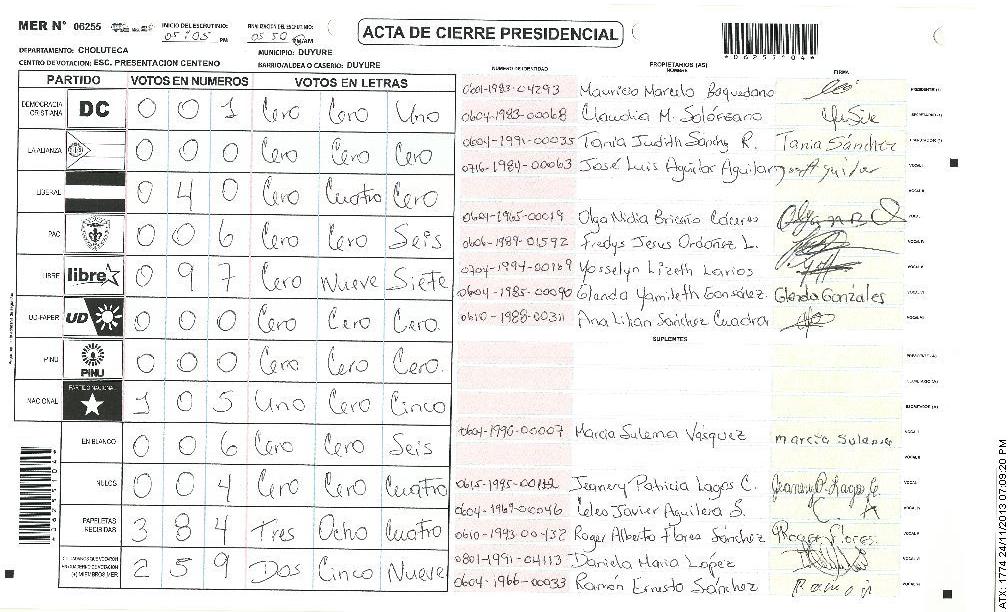 MER N° 06255
INICIO DEL ESCRUTINIO: 05:05 PM
FINALIZACIÓN DEL ESCRUTINIO: 05 50 PM/AM
ACTA DE CIERRE PRESIDENCIAL
*06255104*
DEPARTAMENTO: CHOLUTECA
MUNICIPIO: DUYURE
CENTRO DE VOTACION: ESC. PRESENTACION CENTENO
BARRIO/ALDEA O CASERIO: DUYURE
PARTIDO VOTOS EN NUMEROS VOTOS EN LETRAS
DEMOCRACIA CRISTIANA DC 0 0 1 Cero Cero Uno
LA ALIANZA 0 0 0 Cero Cero Cero
LIBERAL 0 4 0 Cero Cuatro Cero
PAC 0 0 6 Cero Cero Seis
LIBRE libre 0 9 7 Cero Nueve Siete
UD-FAPER UD 0 0 0 Cero Cero Cero
PINU PINU 0 0 0 Cero Cero Cero.
NACIONAL PARTIDO NACIONAL 1 0 5 Uno Cero Cinco
EN BLANCO 0 0 6 Cero Cero Seis
NULOS 0 0 4 Cero Cero Cuatro
PAPELETAS RECIBIDAS 3 8 4 Tres Ocho Cuatro
CIUDADANOS QUE VOTARON (+) MIEMBROS MER 2 5 9 Dos Cinco Nueve
NUMERO DE IDENTIDAD PROPIETARIOS (AS) NOMBRE FIRMA
0601-1983-04293 Mauricio Marcelo Baquedano PRESIDENTE (A)
0604-1983-00068 Claudia M. Solórzano SECRETARIO (A)
0604-1991-00035 Tania Judith Sánchz R. Tania Sánchez ESCRUTADOR (A)
0716-1984-00063 José Luis Aguilar Aguilar VOCAL I
VOCAL II
0604-1965-00019 Olga Nidia Briceño Cáceres
0606-1989-01592 Fredys Jesus Ordoñez L. VOCAL IV
0704-1994-00169 Yosselyn Lizeth Larios VOCAL V
0604-1985-00090 Glenda Yamileth González Glenda Gonzales VOCAL VI
0610-1988-00311 Ana Lilian Sánchez Cuadra VOCAL VII
SUPLENTES
PRESIDENTE (A)
SECRETARIO (A)
ESCRUTADOR (A)
0604-1996-00007 Marcia Sulema Vásquez marcia Sulema VOCAL I
VOCAL II
0615-1995-00112 Jeanery Patricia Lagos C. Jeanery P. Lagos C. VOCAL
0604-1969-00046 Celeo Javier Aguilera S. C A VOCAL IV
0610-1993-00432 Roger Alberto Flores Sánchez Roger Flores VOCAL V
0801-1991-04113 Daniela Maria López
0604-1966-00033 Ramón Ernesto Sánchez Ramon
*06255104*
ATX: 1774 24/11/2013 07:09:20 PM